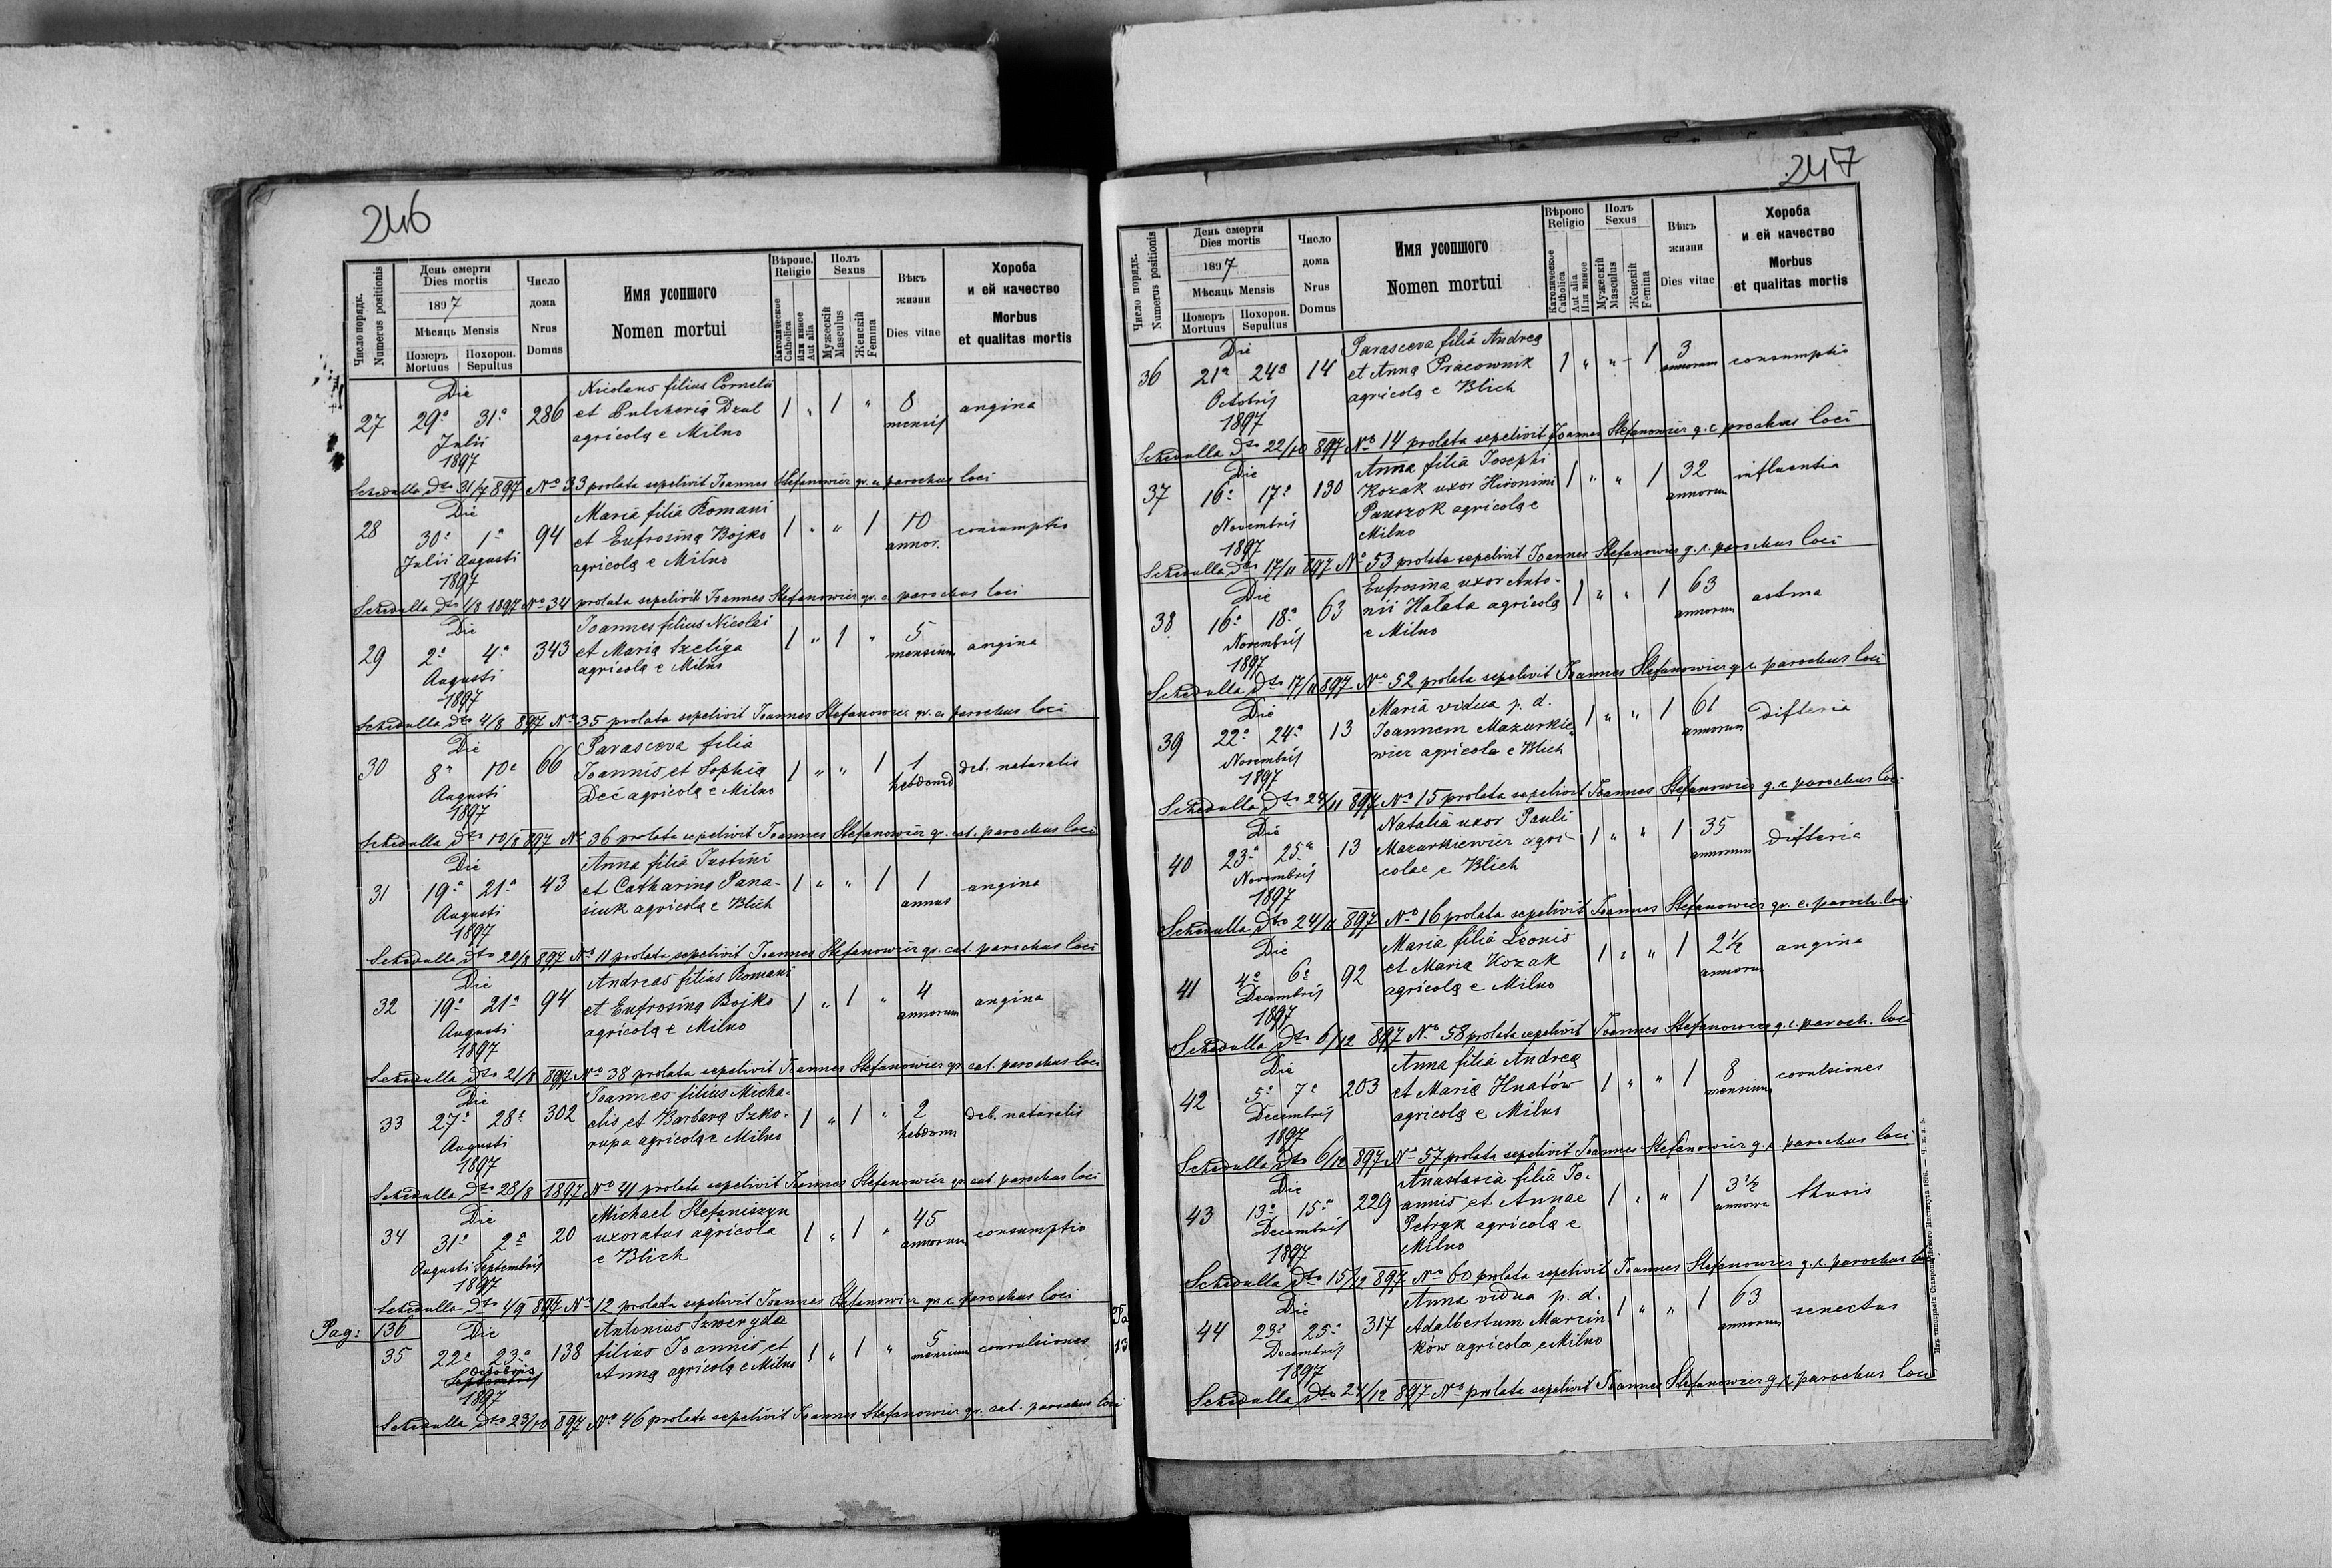 246
Число порядк.
Numerus positionis
День смерти
Dies mortis
1897
Мѣсяць Mensis
Померъ Mortuus
Похорон. Sepultus
Число дома
Nrus Domus
Имя усопшого
Nomen mortui
Вѣроис. Religio
Католическое Catholica
Или иное Aut alia
Полъ Sexus
Мужескій Masculus
Женскій Femina
Вѣкъ жизни
Dies vitae
Хороба и ей качество
Morbus et qualitas mortis
Die
Nicolaus filius Cornelii
27 29a 31a 286 et Pulcheria Dzul 1 " 1 " 8 mensis angina
Julii
agricolę e Milno
1897
Schedulla dto 31/7 897 No 33 prolata sepelivit Joannes Stefanowicz gr. c. parochus loci
Die
Maria filia Romani
28 30a 1a 94 et Eufrosinę Bojko 1 " " 1 10 annor. consumptio
Julii Augusti
agricolę e Milno
1897
Schedulla dto 1/8 1897 No 34 prolata sepelivit Joannes Stefanowicz gr. c. parochus loci
Die
Joannes filius Nicolai
29 2a 4a 343 et Marię Szeliga 1 " 1 " 5 mensium angina
Augusti
agricolę e Milno
1897
Schedulla dto 4/8 897 No 35 prolata sepelivit Joannes Stefanowicz gr. c. parochus loci
Die
Parasceva filia
30 8a 10a 66 Joannis et Sophię 1 " " 1 1 hebdomd deb. naturalis
Augusti
Deć agricolę e Milno
1897
Schedulla dto 10/8 897 No 36 prolata sepelivit Joannes Stefanowicz gr. cat. parochus loci
Die
Anna filia Justini
31 19a 21a 43 et Catharinę Pana- 1 " " 1 1 annus angina
Augusti
siuk agricolę e Blich
1897
Schedulla dto 20/8 897 No 11 prolata sepelivit Joannes Stefanowicz gr. cat. parochus loci
Die
Andreas filius Romani
32 19a 21a 94 et Eufrosinę Bojko 1 " 1 " 4 annorum angina
Augusti
agricolę e Milno
1897
Schedulla dto 21/8 897 No 38 prolata sepelivit Joannes Stefanowicz gr. cat. parochus loci
Die
Joannes filius Micha-
33 27a 28a 302 elis et Barbarę Szko- 1 " 1 " 2 hebdom deb. naturalis
Augusti
rupa agricolę e Milno
1897
Schedulla dto 28/8 1897 No 41 prolata sepelivit Joannes Stefanowicz gr. cat. parochus loci
Die
Michael Stefaniszyn
34 31a 2a 20 uxoratus agricola 1 " 1 " 45 annorum consumptio
Augusti Septembris
e Blich
1897
Schedulla dto 1/9 897 No 12 prolata sepelivit Joannes Stefanowicz gr. c. parochus loci
Pag: 136
Die
Antonius Szweryda
35 22a 23a 138 filius Joannis et 1 " 1 " 5 mensium convulsiones
Octobris
Septembris
Annę agricolę e Milno
1897
Schedulla dto 23/10 897 No 46 prolata sepelivit Joannes Stefanowicz gr. cat. parochus loci
247
Число порядк.
Numerus positionis
День смерти
Dies mortis
1897
Мѣсяць Mensis
Померъ Mortuus
Похорон. Sepultus
Число дома
Nrus Domus
Имя усопшого
Nomen mortui
Вѣроис Religio
Католическое Catholica
Aut alia Или иное
Полъ Sexus
Мужескій Masculus
Женскій Femina
Вѣкъ жизни
Dies vitae
Хороба и ей качество
Morbus et qualitas mortis
Die
Parasceva filia Andreę
36 21a 24a 14 et Annę Pracownik 1 " " 1 3 annorum consumptio
Octobris
agricolę e Blich
1897
Schedulla dto 22/10 897 No 14 prolata sepelivit Joannes Stefanowicz g. c. parochus loci
Die
Anna filia Josephi
37 16a 17a 130 Kozak uxor Hieronimi 1 " " 1 32 annorum influentia
Novembris
Panszok agricolę e
1897
Milno
Schedulla dto 17/11 897 No 53 prolata sepelivit Joannes Stefanowicz g. c. parochus loci
Die
Eufrosina uxor Anto-
38 16a 18a 63 nii Halata agricolę 1 " " 1 63 annorum astma
Novembris
e Milno
1897
Schedulla dto 17/11 897 No 52 prolata sepelivit Joannes Stefanowicz g. c. parochus loci
Die
Maria vidua p. d.
39 22a 24a 13 Joannem Mazurkie- 1 " " 1 61 annorum difteria
Novembris
wicz agricola e Blich
1897
Schedulla dto 24/11 897 No 15 prolata sepelivit Joannes Stefanowicz g. c. parochus loci
Die
Natalia uxor Pauli
40 23a 25a 13 Mazurkiewicz agri- 1 " " 1 35 annorum difteria
Novembris
colae e Blich
1897
Schedulla dto 24/11 897 No 16 prolata sepelivit Joannes Stefanowicz gr. c. paroch. loci
Die
Maria filia Leonis
41 4a 6a 92 et Maria Kozak 1 " " 1 2½ annorum angina
Decembris
agricolę e Milno
1897
Schedulla dto 6/12 897 No 58 prolata sepelivit Joannes Stefanowicz g. c. paroch. loci
Die
Anna filia Andreę
42 5a 7a 203 et Marię Hnatów 1 " " 1 8 mensium covulsiones
Decembris
agricolę e Milno
1897
Schedulla dto 6/12 897 No 57 prolata sepelivit Joannes Stefanowicz g. c. parochus loci
Die
Anastasia filia Jo-
43 13a 15a 229 annis et Annae 1 " " 1 3½ thusis
Decembris
Petryk agricolę e
1897
Milno
Schedulla dto 15/12 897 No 60 prolata sepelivit Joannes Stefanowicz g. c. parochus loci
Die
Anna vidua p. d.
44 23a 25a 317 Adalbertum Marcin 1 " " 1 63 annorum senectus
Decembris
ków agricola e Milno
1897
Schedulla dto 24/12 897 No prolata sepelivit Joannes Stefanowicz g. c. parochus loci